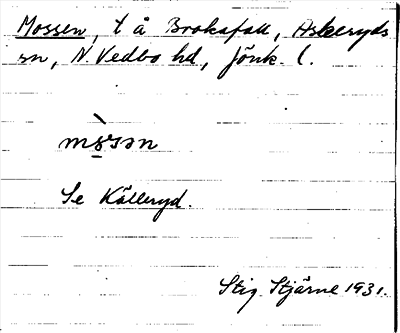 Mossen, t å Brokafall, Askeryds
sn, N. Vedbo hd, Jönk. l.
Se Källeryd.
Stig Stjärne 1931.